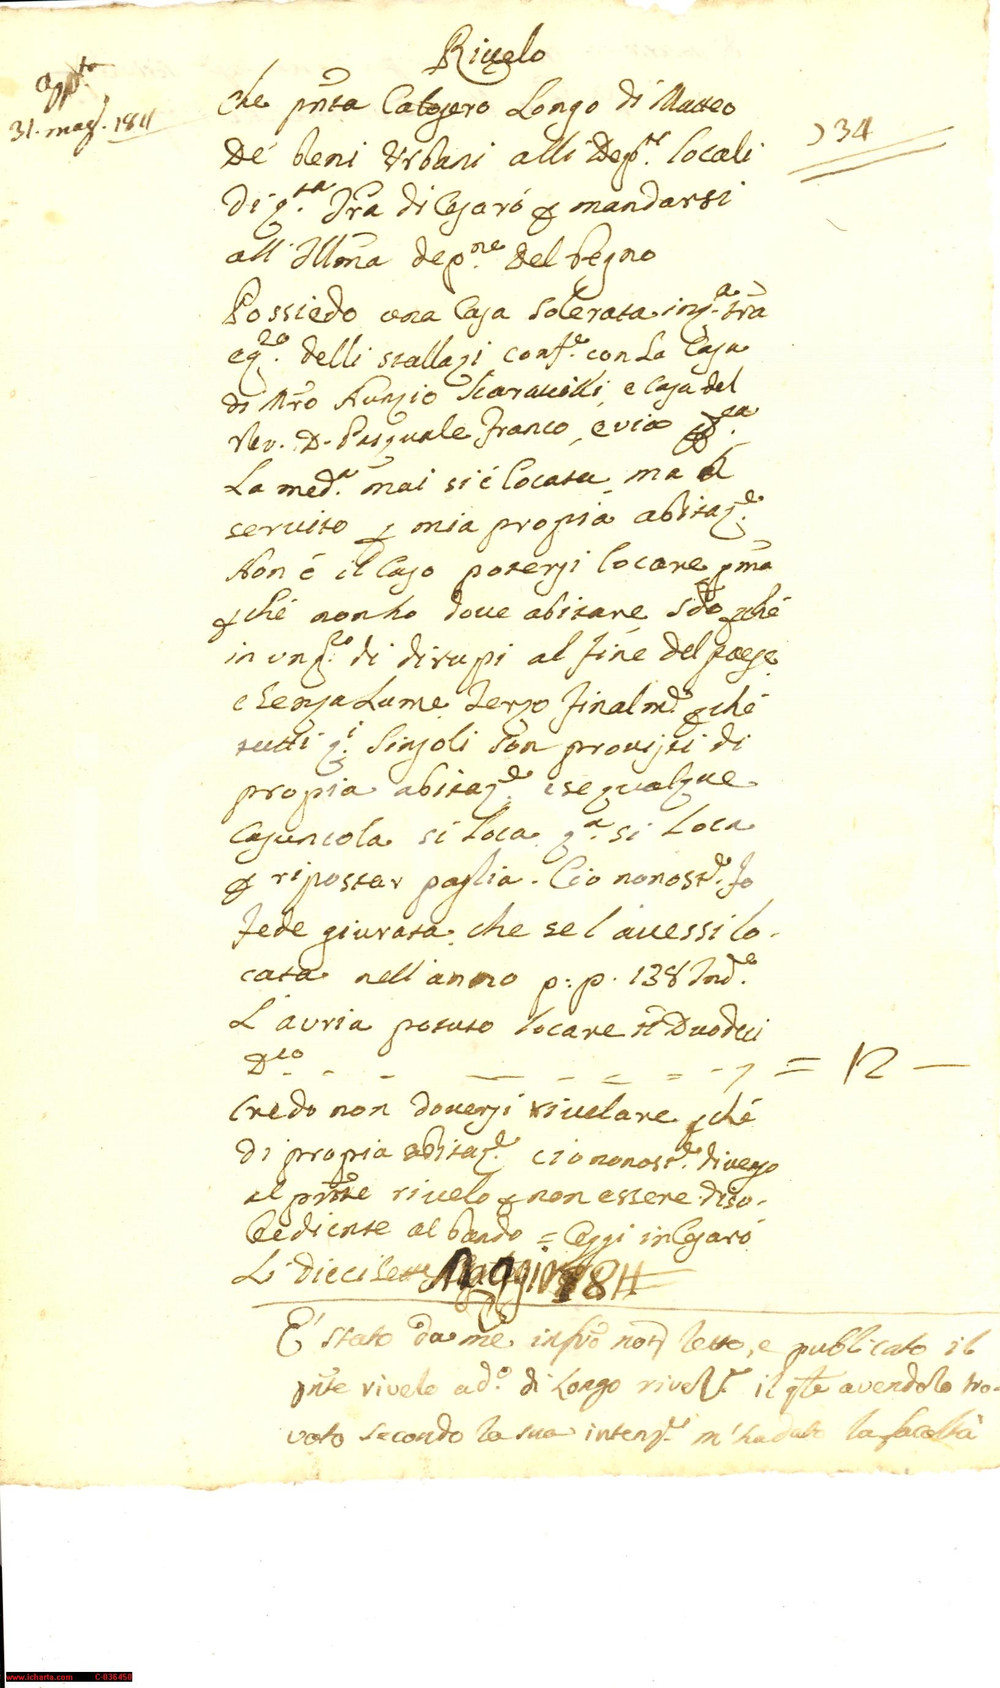 Rivelo
app.ta
31. mag. 1811
334
che pnta Calogero Longo di Matteo
De' beni Urbani alli Dep.ti locali
di q.sta Tra di Cesarò p mandarsi
all'Illma dep.ne del Regno
Possiedo una Casa Solerata in q.a Tra
e q.ro delli stallazi conf.e con La Casa
di Mro Nunzio Scaravilli, e Casa del
Rev. D. Pasquale Franco, e via
La med.a mai si è locata, ma à
servito p mia propia abitaz.e
Non è il Caso potersi locare pma
pchè non ho dove abitare Sdo pchè
in un di dirupi al fine del paese
e Senza Lume Terzo finalm.e pchè
tutti q.i Singoli son provisti di
propia abitaz.e e se qualque
Casuncola si loca q.a si loca
p ripostar paglia. Ciò nonost.e fo
fede giurata che se l'avessi lo-
cata nell'anno p: p. 138 Ind.e
L'avria potuto locare Duodeci
D.co = 12 —
Credo non doversi rivelare pchè
di propria abitaz.e ciò nonost.e divengo
al pnte rivelo p non essere diso-
bediente al bando = Oggi in Cesarò
Li diecisette Maggio 1811
E' stato da me infro notr letto, e publicato il
pnte rivelo ad.o di Longo rivel.te il qle avendolo tro-
vato secondo la sua intenz.e m'ha dato la facoltà
www.icharta.com C-036450